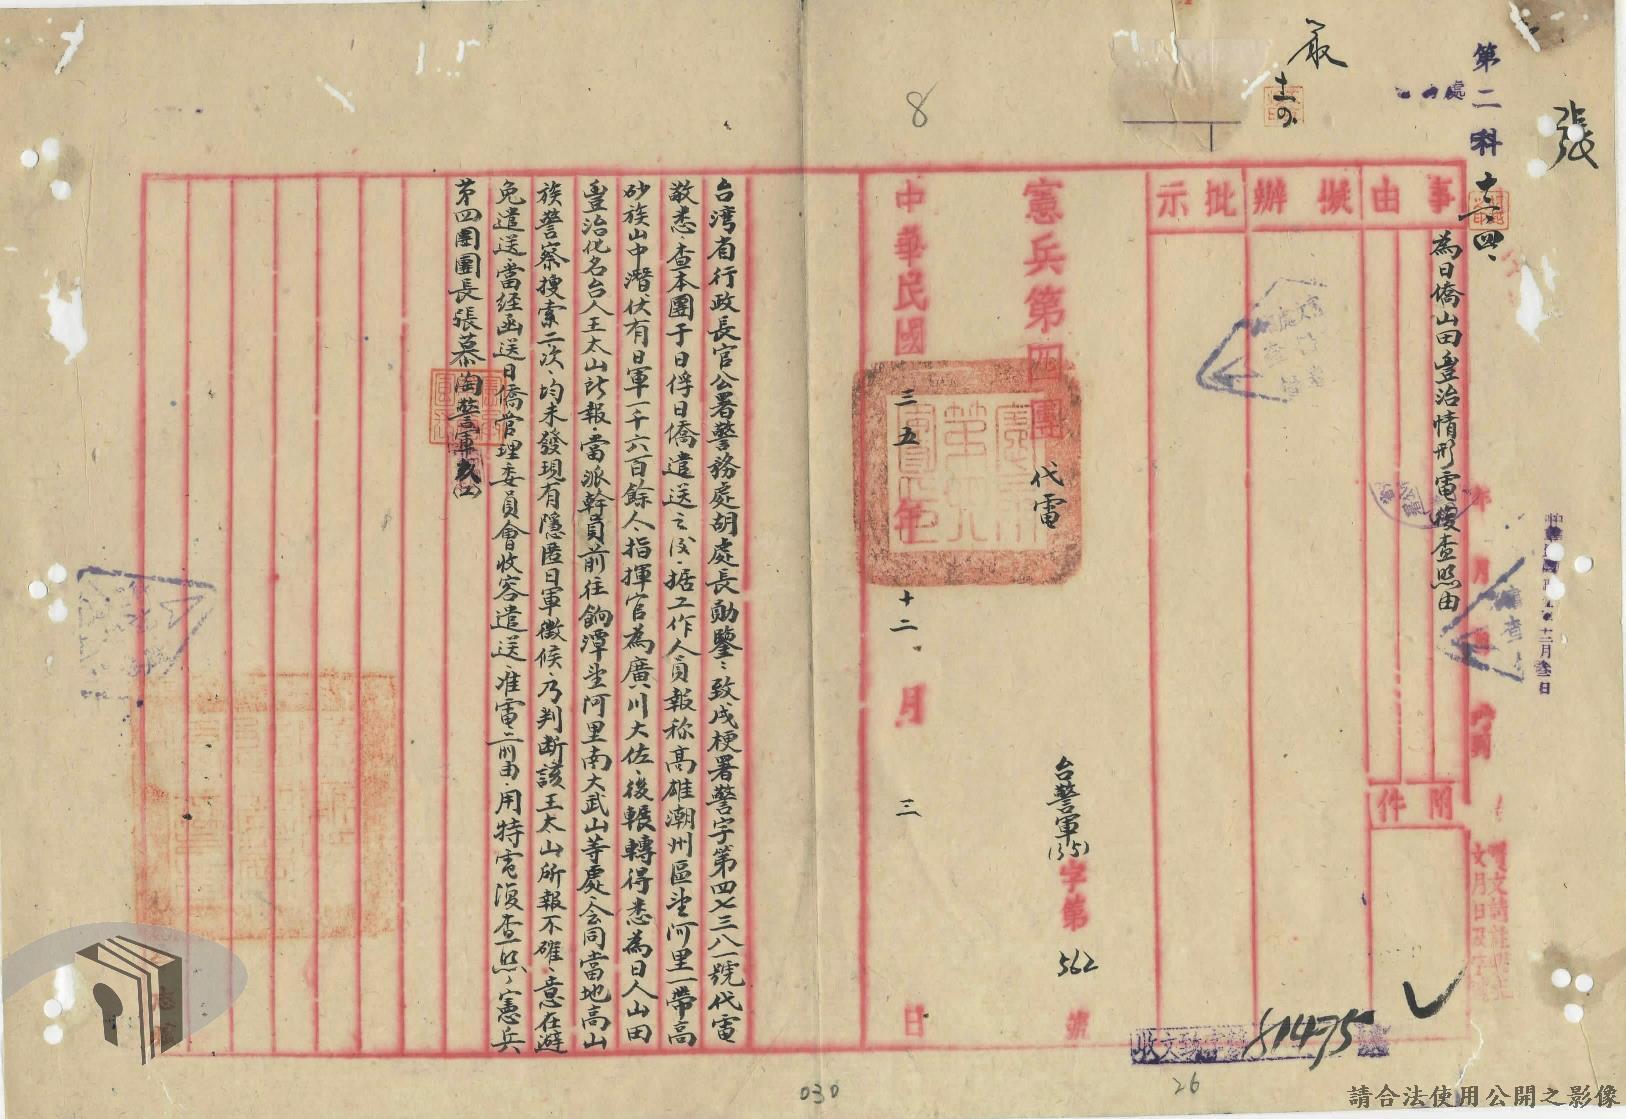 張
第二科
十二、四、
嚴
十二、四
8
事由
擬辦
批示
為日僑山田豊治情形電復查照由
附件
憲兵第四團
代電
台警軍(35)字第562號
中華民國三五年十二、月三日
台湾省行政長官公署警務處胡處長勛鑒：致戌梗署警字第四七三八一號代電
敬悉查本團于日俘日僑遣送之後、據工作人員報称高雄潮州區
阿里一帶高
砂族山中潛伏有日軍一千六百餘人、指揮官為廣川大佐、後輾轉得悉為日人山田
豊治化名台人王太山所報、當派幹員前往餉潭
阿里南大武山等處、会同當地高山
族警察搜索二次、均未發現有隱匿日軍徵候、乃判断該王太山所報不確、意在避
免遣送、當經函送日僑管理委員會收容遣送、准電前由、用特電復查照、憲兵
第四團團長張慕陶警軍
收文
81475
030
26
請合法使用公開之影像